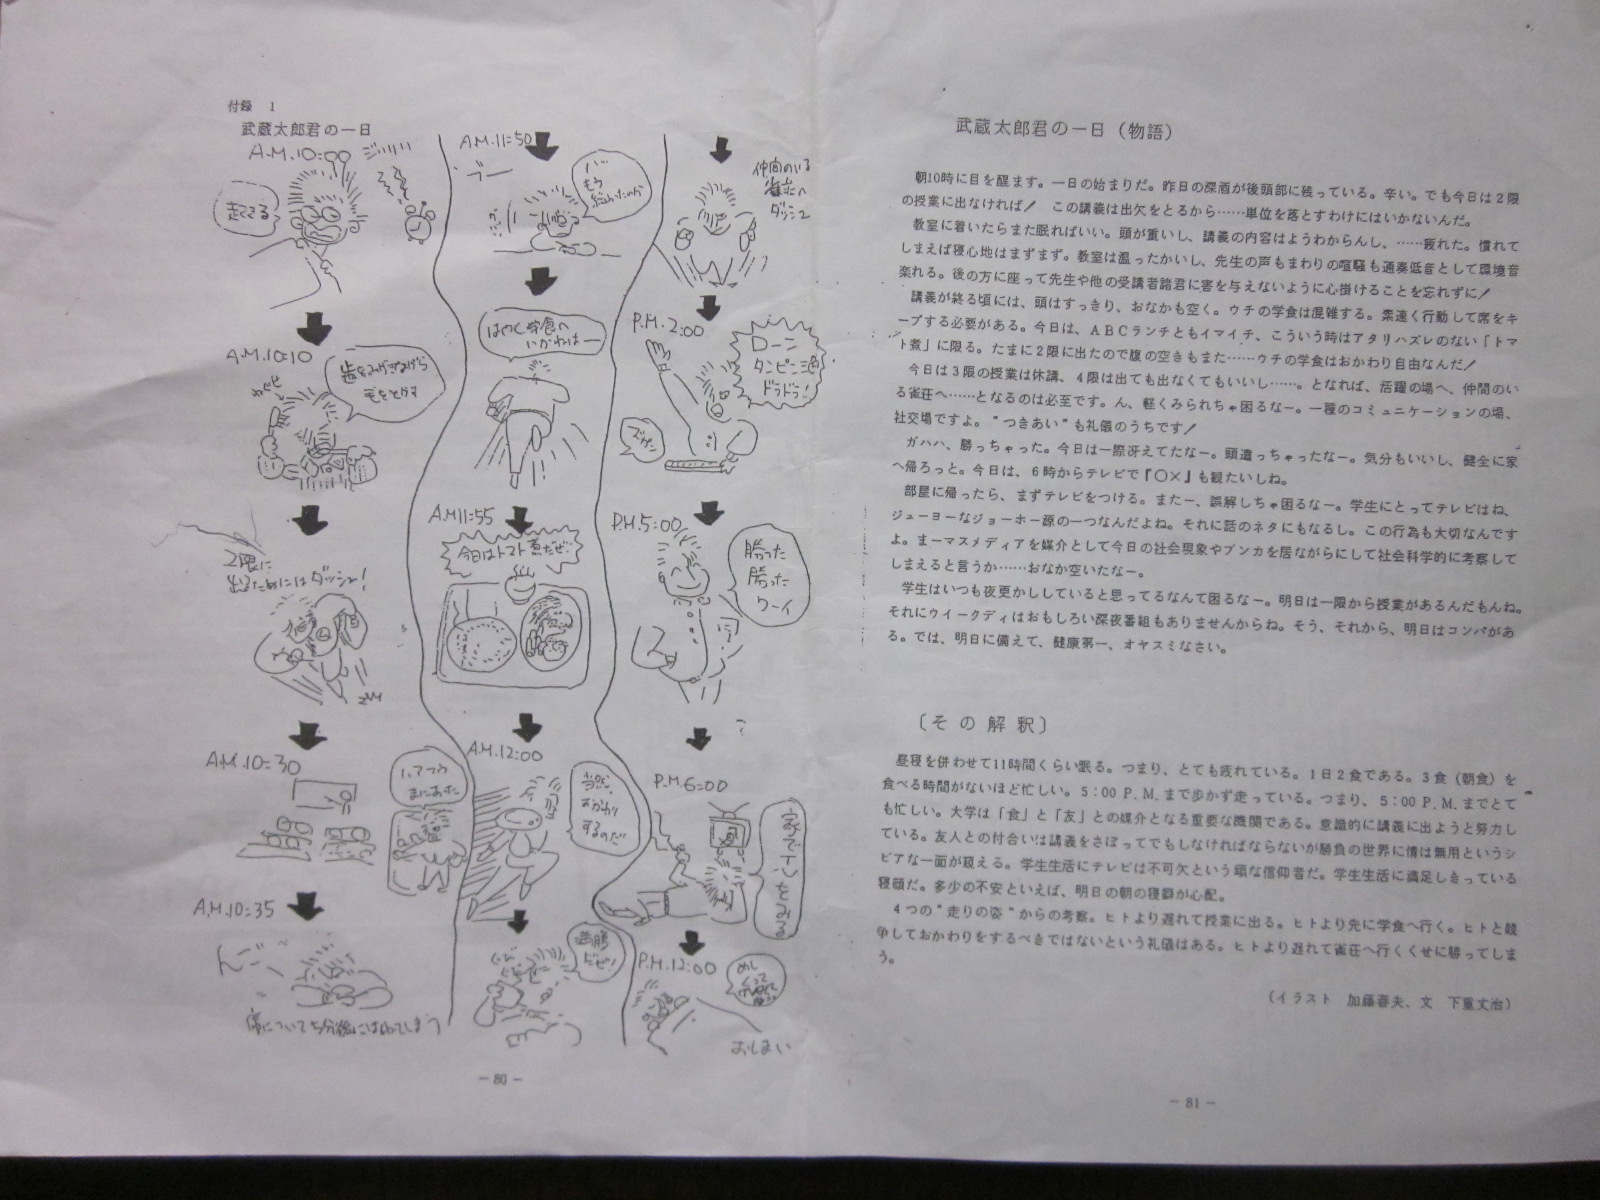 付録 1
武蔵太郎君の一日
A.M.10:00
ジリリリ
起きてる
A.M.10:10
歯をみがきながら
毛をとかす
2限に
出るためにはダッシュ!
A.M.10:30
いてつう
まにあった
A.M.10:35
席について5分後にはねてしまう
A.M.11:50
ブー
もう
終わったのか
はやく学食へ
いかねばー
A.M.11:55
今日はトマト煮だぜ
A.M.12:00
当然、
おかわり
するのだ
満腹
だぜ!
仲間のいる
雀荘へ
ダッシュ
P.M.2:00
ローン
タンピン三色
ドラドラ!
P.M.5:00
勝った
勝った
ワーイ
P.M.6:00
家でTVをみる
P.M.12:00
めし
くって
おしまい
－80－
武蔵太郎君の一日(物語)
朝10時に目を醒ます。一日の始まりだ。昨日の深酒が後頭部に残っている。辛い。でも今日は2限
の授業に出なければ! この講義は出欠をとるから……単位を落とすわけにはいかないんだ。
教室に着いたらまた眠ればいい。頭が重いし、講義の内容はようわからんし、……疲れた。慣れて
しまえば寝心地はまずまず。教室は温ったかいし、先生の声もまわりの喧騒も通奏低音として環境音
楽れる。後の方に座って先生や他の受講者諸君に害を与えないように心掛けることを忘れずに!
講義が終る頃には、頭はすっきり、おなかも空く。ウチの学食は混雑する。素速く行動して席をキ
ープする必要がある。今日は、ABCランチともイマイチ、こういう時はアタリハズレのない「トマ
ト煮」に限る。たまに2限に出たので腹の空きもまた……ウチの学食はおかわり自由なんだ!
今日は3限の授業は休講、4限は出ても出なくてもいいし……。となれば、活躍の場へ、仲間のい
る雀荘へ……となるのは必至です。ん、軽くみられちゃ困るなー。一種のコミュニケーションの場、
社交場ですよ。"つきあい"も礼儀のうちです!
ガハハ、勝っちゃった。今日は一際冴えてたなー。頭遣っちゃったなー。気分もいいし、健全に家
へ帰ろっと。今日は、6時からテレビで『○×』も観たいしね。
部屋に帰ったら、まずテレビをつける。またー、誤解しちゃ困るなー。学生にとってテレビはね、
ジューヨーなジョーホー源の一つなんだよね。それに話のネタにもなるし。この行為も大切なんです
よ。まーマスメディアを媒介として今日の社会現象やブンカを居ながらにして社会科学的に考察して
しまえると言うか……おなか空いたなー。
学生はいつも夜更かししていると思ってるなんて困るなー。明日は一限から授業があるんだもんね。
それにウイークディはおもしろい深夜番組もありませんからね。そう、それから、明日はコンパがあ
る。では、明日に備えて、健康第一、オヤスミなさい。
〔その解釈〕
昼寝を併わせて11時間くらい眠る。つまり、とても疲れている。1日2食である。3食(朝食)を
食べる時間がないほど忙しい。5:00 P.M.まで歩かず走っている。つまり、5:00 P.M.までとて
も忙しい。大学は「食」と「友」との媒介となる重要な機関である。意識的に講義に出ようと努力し
ている。友人との付合いは講義をさぼってでもしなければならないが勝負の世界に情は無用というシ
ビアな一面が窺える。学生生活にテレビは不可欠という頑な信仰者だ。学生生活に満足しきっている
寝顔だ。多少の不安といえば、明日の朝の寝癖が心配。
4つの"走りの姿"からの考察。ヒトより遅れて授業に出る。ヒトより先に学食へ行く。ヒトと競
争しておかわりをするべきではないという礼儀はある。ヒトより遅れて雀荘へ行くくせに勝ってしま
う。
(イラスト 加藤春夫、文 下重丈治)
－81－